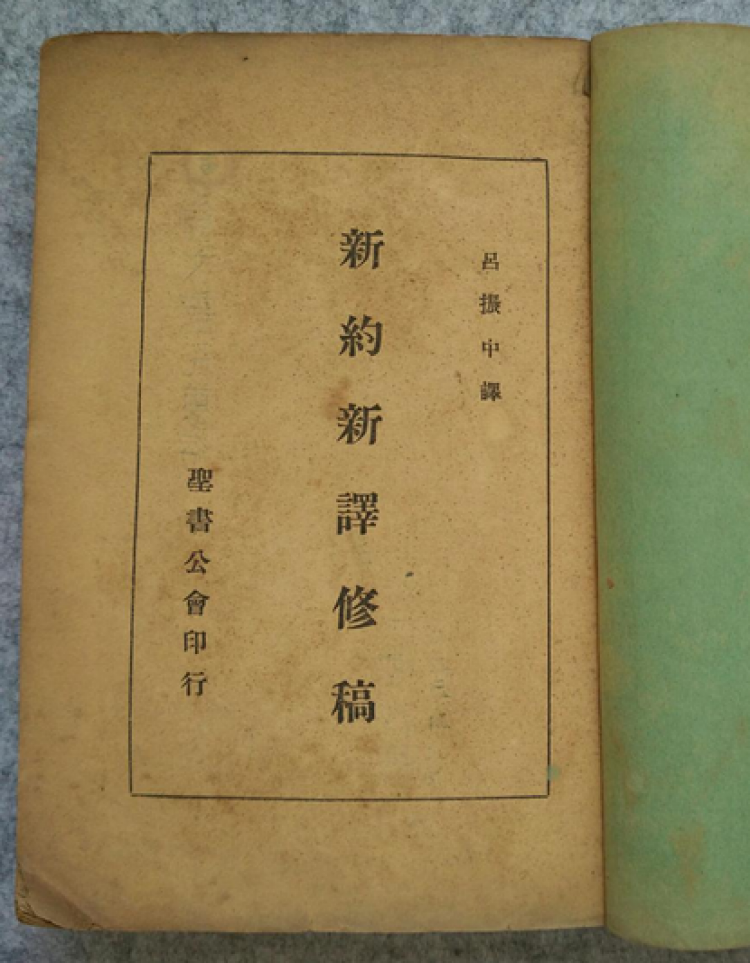 呂振中譯
新約新譯修稿
聖書公會印行